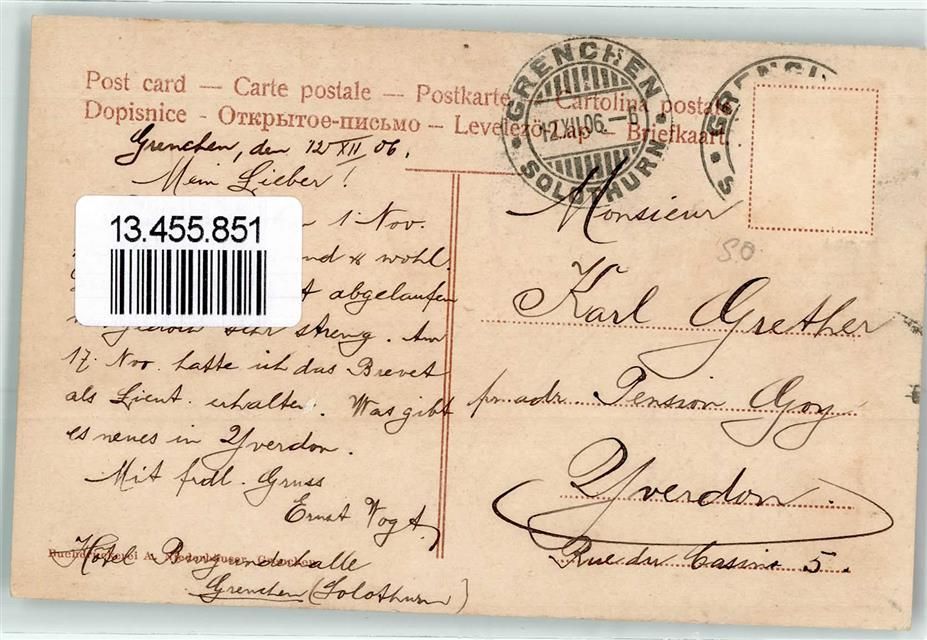 Post card — Carte postale — Postkarte — Cartolina postale
Dopisnice - Открытое-письмо — Levelező-Lap — Briefkaart.
GRENCHEN
12.XII.06.—6
SOLOTHURN
GRENCH
S
Grenchen, den 12 XII 06.
Mein Lieber!
1 Nov.
13.455.851
nd & wohl.
abgelaufen
sehr streng. Am
17. Nov. hatte ich das Brevet
als Lieut. erhalten. Was gibt
es neues in Yverdon.
Mit frdl. Gruss
Ernst Vogt,
Hotel Burgunderhalle
Grenchen (Solothurn)
Buchdruckerei A. Niederhäuser, Grenchen
Monsieur
S.O.
Karl Grether
pr. adr. Pension Goy
Yverdon.
Rue du Casino 5.